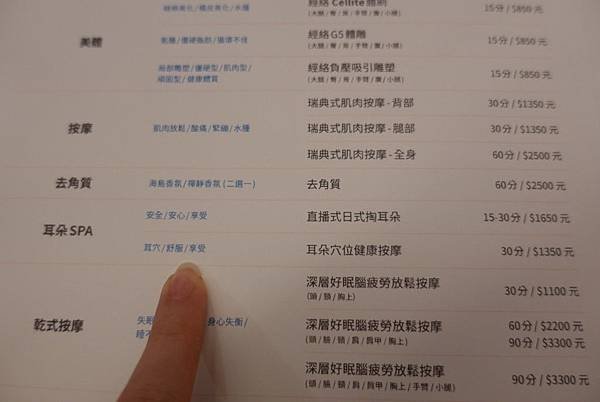 經絡 Cellite 體刷
15分 / $850 元
(大腿 / 臀 / 背 / 手臂 / 腹 / 小腿)
美體
循環不佳
經絡 G5 體雕
15分 / $850 元
(大腿 / 臀 / 背 / 手臂 / 腹 / 小腿)
局部雕塑 / 僵硬型 / 肌肉型 /
頑固型 / 健康體質
經絡負壓吸引雕塑
15分 / $850元
(大腿 / 臀 / 背 / 手臂 / 腹 / 小腿)
按摩
肌肉放鬆 / 酸痛 / 緊繃 / 水腫
瑞典式肌肉按摩 - 背部
30分 / $1350 元
瑞典式肌肉按摩 - 腿部
30分 / $1350 元
瑞典式肌肉按摩 - 全身
60分 / $2500 元
去角質
海島香氛 / 禪靜香氛 (二選一)
去角質
60分 / $2500 元
耳朵 SPA
安全 / 安心 / 享受
直播式日式掏耳朵
15-30分 / $1650 元
耳穴 / 舒服 / 享受
耳朵穴位健康按摩
30分 / $1350 元
乾式按摩
失眠
身心失衡 /
深層好眠腦疲勞放鬆按摩
30分 / $1100 元
(頭 / 頸 / 胸上)
深層好眠腦疲勞放鬆按摩
60分 / $2200 元
(頭 / 臉 / 頸 / 肩 / 肩甲 / 胸上)
90分 / $3300 元
深層好眠腦疲勞放鬆按摩
90分 / $3300 元
(頭 / 臉 / 頸 / 肩 / 肩甲 / 胸上 / 手臂 / 小腿)